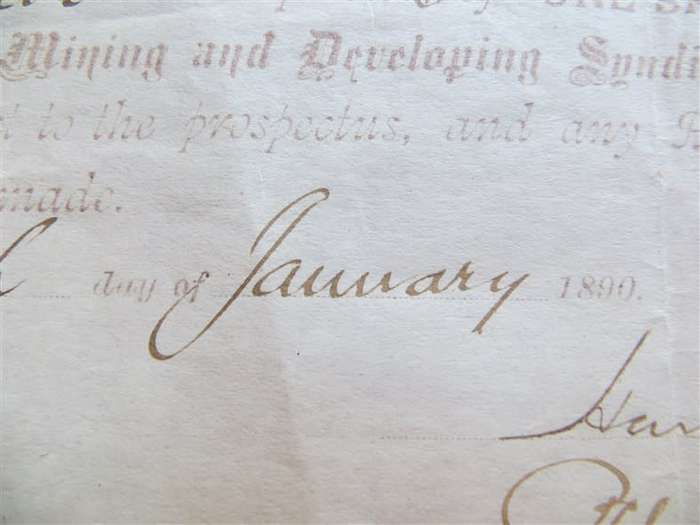 ONE S
Mining and Developing Syndi
t to the prospectus, and any R
made.
day of January 1890.
Har